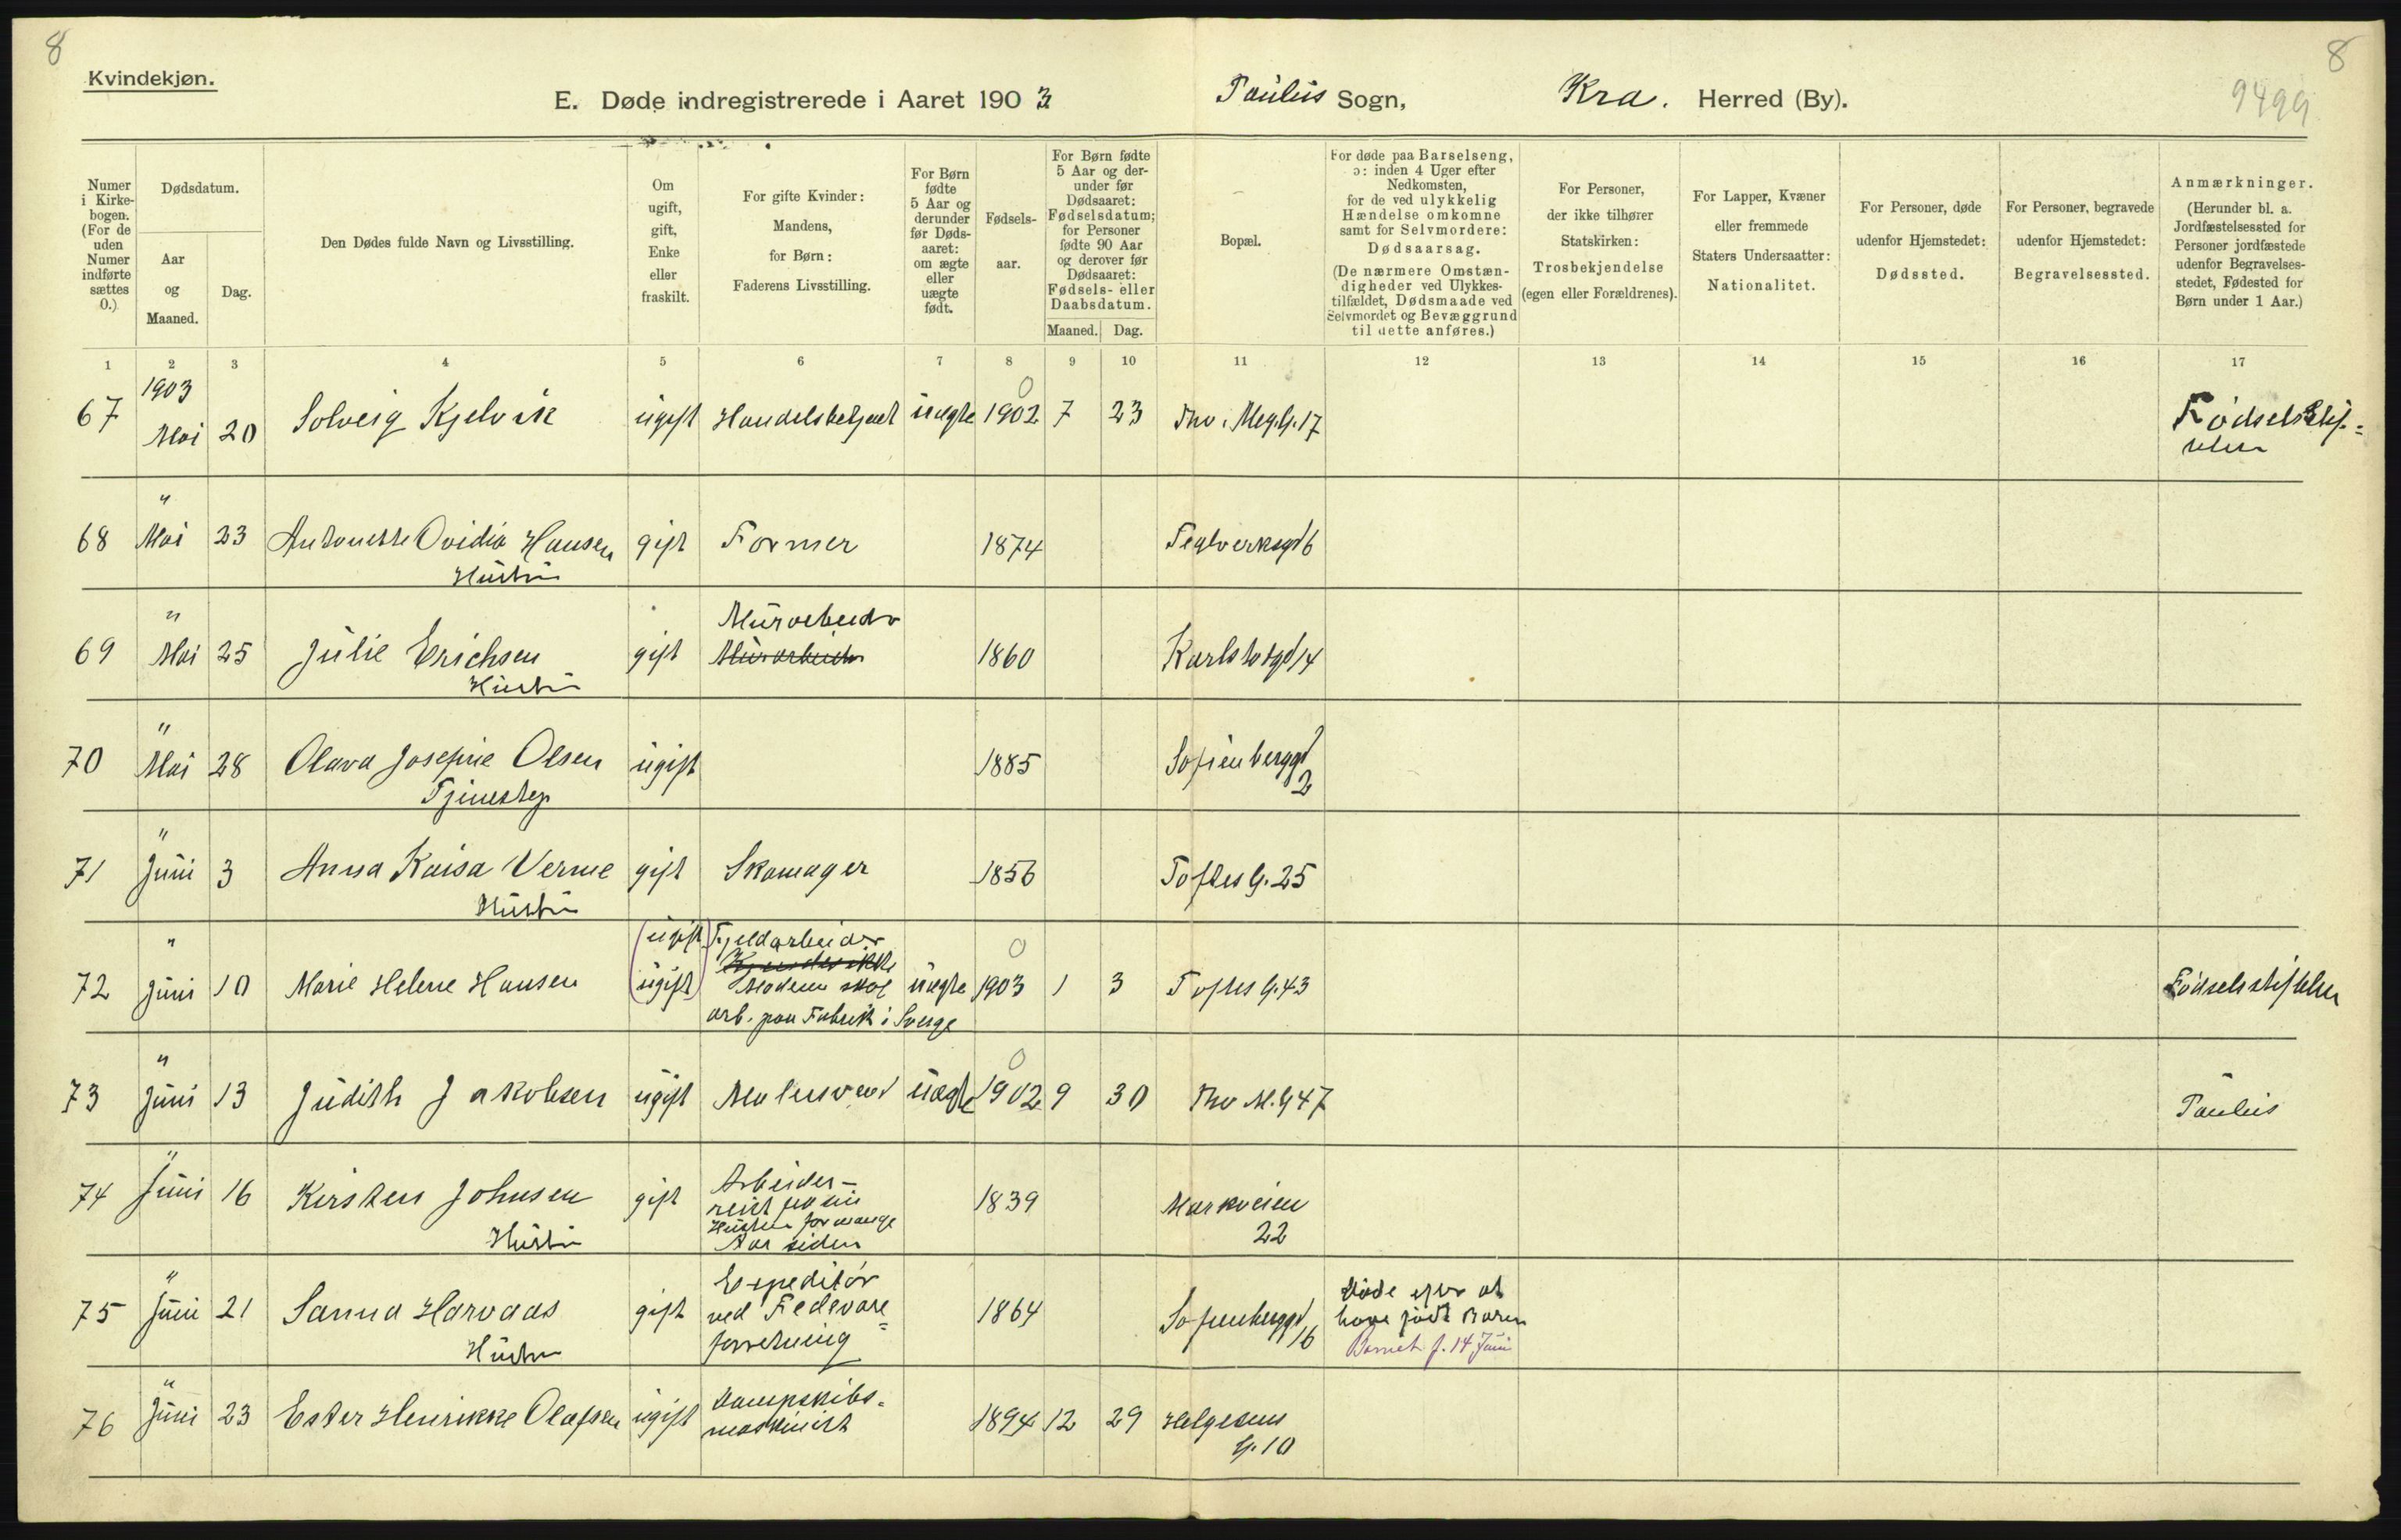 8
8
Kvindekjøn.
E. Døde indregistrerede i Aaret 1903 Paulus Sogn, Kra. Herred (By).
9499
Numer i Kirke-bogen. (For de uden Numer indførte sættes 0.)
Dødsdatum.
Aar og Maaned.
Dag.
Den Dødes fulde Navn og Livsstilling.
Om ugift, gift, Enke eller fraskilt.
For gifte Kvinder: Mandens, for Børn: Faderens Livsstilling.
For Børn fødte 5 Aar og derunder før Døds-aaret: om ægte eller uægte født.
Fødsels-aar.
For Børn fødte 5 Aar og der-under før Dødsaaret: Fødselsdatum; for Personer fødte 90 Aar og derover før Dødsaaret: Fødsels- eller Daabsdatum.
Maaned. Dag.
Bopæl.
For døde paa Barselseng, ɔ: inden 4 Uger efter Nedkomsten, for de ved ulykkelig Hændelse omkomne samt for Selvmordere: Dødsaarsag. (De nærmere Omstæn-digheder ved Ulykkes-tilfældet, Dødsmaade ved Selvmordet og Bevæggrund til dette anføres.)
For Personer, der ikke tilhører Statskirken: Trosbekjendelse (egen eller Forældrenes).
For Lapper, Kvæner eller fremmede Staters Undersaatter: Nationalitet.
For Personer, døde udenfor Hjemstedet: Dødssted.
For Personer, begravede udenfor Hjemstedet: Begravelsessted.
Anmærkninger. (Herunder bl. a. Jordfæstelsessted for Personer jordfæstede udenfor Begravelses-stedet, Fødested for Børn under 1 Aar.)
1 2 3 4 5 6 7 8 9 10 11 12 13 14 15 16 17
1903 0
67 Mai 20 Solveig Kjelvik ugift Handelsbetjent uægte 1902 7 23 Thv. Meg.G. 17 Fødselsstif=
telsen
"
68 Mai 23 Antonette Ovidia Hansen gift Former 1874 Teglverksgd 6
Hustru
" Murarbeider
69 Mai 25 Julie Erichsen gift Murarbeider 1860 Karlstadgd 14
Hustru
"
70 Mai 28 Olava Josefine Olsen ugift 1885 Sofienberggd
Tjenestep. 2
"
71 Juni 3 Anna Kaisa Verme gift Skomager 1856 Toftes G. 25
Hustru
" ugift Fjeldarbeider 0
Kjendes ikke
72 Juni 10 Marie Helene Hansen ugift Moderen skal uægte 1903 1 3 Toftes G. 43 Fødselsstiftelsen
arb. paa Fabrik i Sverge
" 0
73 Juni 13 Judith Jakobsen ugift Malersvend uægte 1902 9 30 Thv M.G 47 Paulus
"
74 Juni 16 Kirsten Johnsen gift Arbeider - 1839 Markveien
reist fra sin
Hustru for mange
Hustru Aar siden 22
" Expeditør Døde efter at
75 Juni 21 Sanna Harvaas gift ved Fedevare= 1864 Sofienberggd 16 have født Barn
Hustru forretning Barnet f. 14 Juni
" Dampskibs=
76 Juni 23 Ester Henrikke Olafsen ugift maskinist 1894 12 29 Helgesens
G. 10